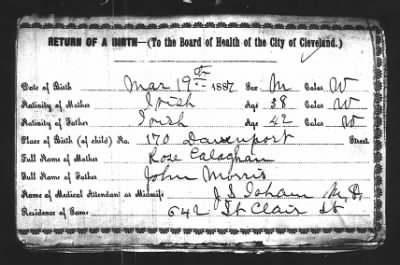 RETURN OF A BIRTH—(To the Board of Health of the City of Cleveland.)
Date of Birth Mar 19th 1887 Sex M Color W
Nativity of Mother Irish Age 38 Color W
Nativity of Father Irish Age 42 Color W
Place of Birth (of child) No. 170 Davenport Street.
Full Name of Mother Rose Calaghan
Full Name of Father John Morris
Name of Medical Attendant or Midwife J. S. Isham M.D.
Residence of Same 642 St Clair St